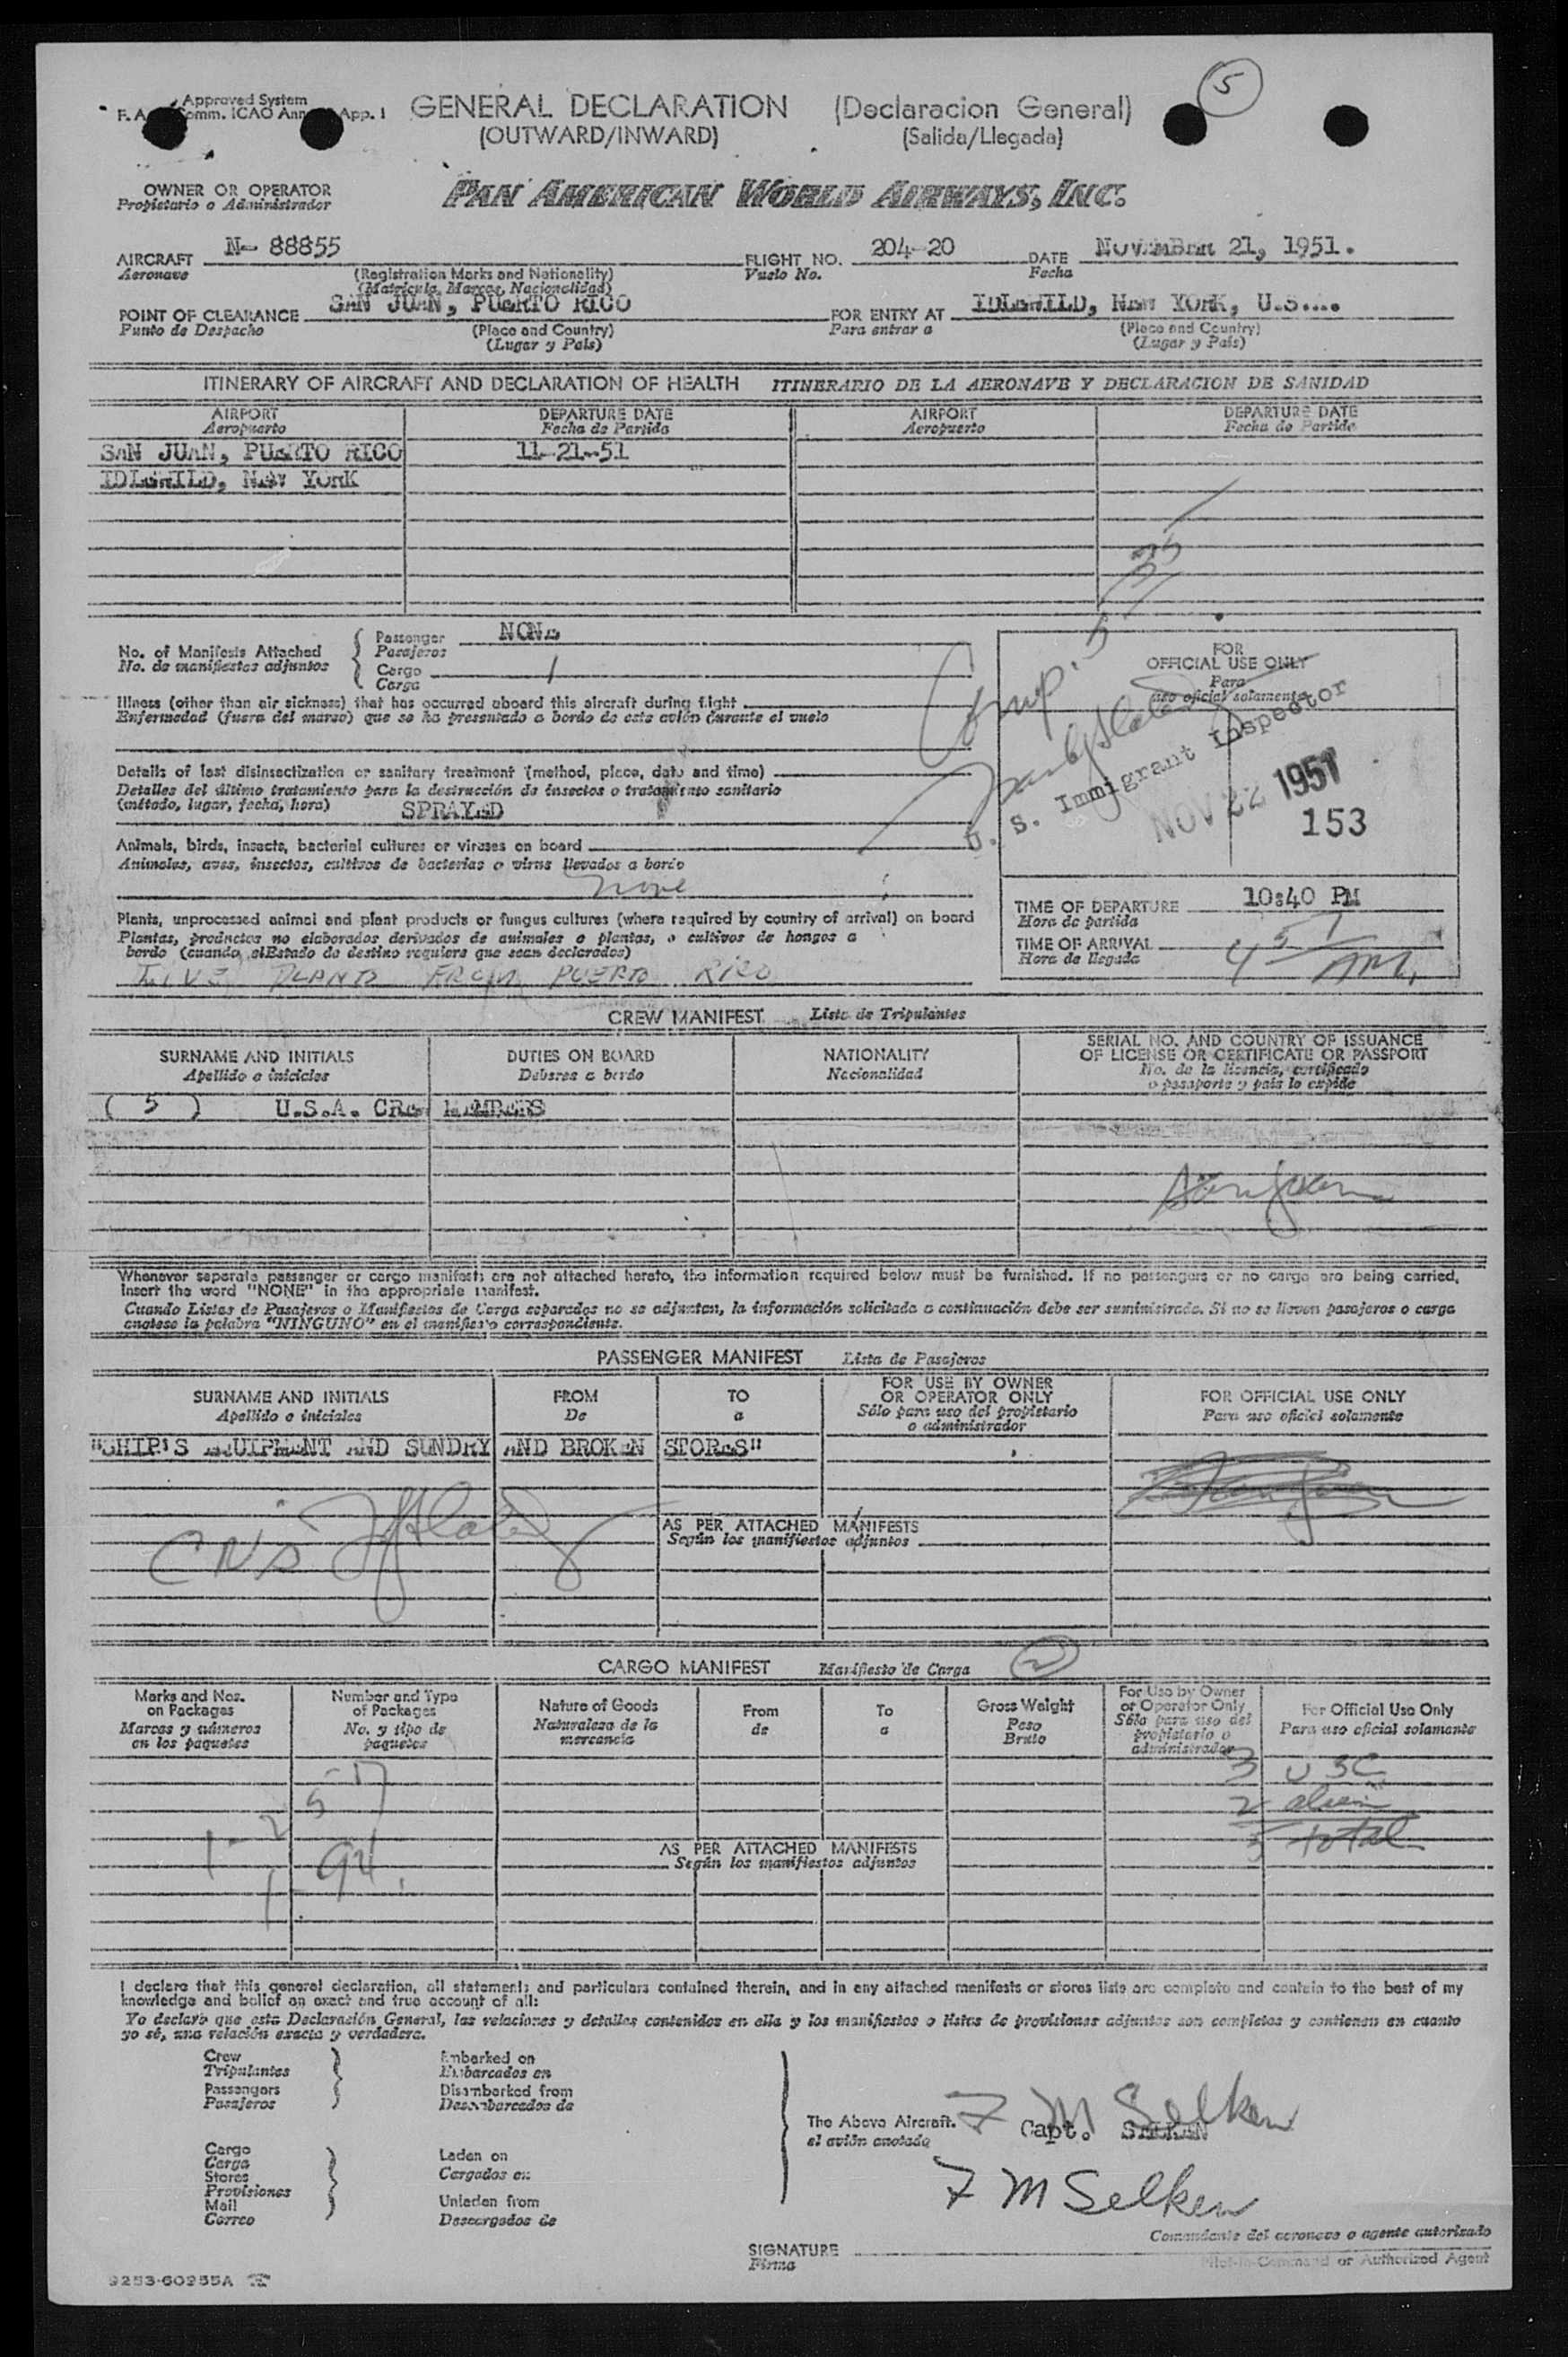 Approved System
App. 1
GENERAL DECLARATION (Declaracion General)
5
(OUTWARD/INWARD) (Salida/Llegada)
OWNER OR OPERATOR
Propietario o Administrador
PAN AMERICAN WORLD AIRWAYS, INC.
AIRCRAFT N- 88855 FLIGHT NO. 204-20 DATE NOVEMBER 21, 1951.
Aeronave (Registration Marks and Nationality) Vuelo No. Fecha
(Matricula, Marcas, Nacionalidad)
POINT OF CLEARANCE SAN JUAN, PUERTO RICO FOR ENTRY AT IDLEWILD, NEW YORK,
Punto de Despacho (Place and Country) Para entrar a (Place and Country)
(Lugar y País) (Lugar y País)
ITINERARY OF AIRCRAFT AND DECLARATION OF HEALTH ITINERARIO DE LA AERONAVE Y DECLARACION DE SANIDAD
AIRPORT DEPARTURE DATE AIRPORT DEPARTURE DATE
Aeropuerto Fecha de Partida Aeropuerto Fecha de Partida
SAN JUAN, PUERTO RICO 11-21-51
IDLEWILD, NEW YORK
No. of Manifests Attached
No. de manifiestos adjuntos
Passenger NONE
Pasajeros
Cargo 1
Carga
Illness (other than air sickness) that has occurred aboard this aircraft during flight
Enfermedad (fuera del mareo) que se ha presentado a bordo de este avión durante el vuelo
Details of last disinsectization or sanitary treatment (method, place, date and time)
Detalles del último tratamiento para la destrucción de insectos o tratamiento sanitario
(método, lugar, fecha, hora) SPRAYED
Animals, birds, insects, bacterial cultures or viruses on board
Animales, aves, insectos, cultivos de bacterias o virus llevados a bordo
none
Plants, unprocessed animal and plant products or fungus cultures (where required by country of arrival) on board
Plantas, productos no elaborados derivados de animales o plantas, o cultivos de hongos a
bordo (cuando elEstado de destino requiera que sean declarados)
LIVE PLANTS FROM PUERTO RICO
FOR
OFFICIAL USE ONLY
Para
uso oficial solamente
U. S. Immigrant Inspector
NOV 22 1951
153
TIME OF DEPARTURE 10:40 PM
Hora de partida
TIME OF ARRIVAL
Hora de llegada
CREW MANIFEST Lista de Tripulantes
SURNAME AND INITIALS DUTIES ON BOARD NATIONALITY SERIAL NO. AND COUNTRY OF ISSUANCE
OF LICENSE OR CERTIFICATE OR PASSPORT
Apellido e iniciales Deberes a bordo Nacionalidad No. de la licencia, certificado
o pasaporte y país lo expide
( 5 ) U.S.A. CREW MEMBERS
San Juan
Whenever separate passenger or cargo manifests are not attached hereto, the information required below must be furnished. If no passengers or no cargo are being carried,
insert the word "NONE" in the appropriate manifest.
Cuando Listas de Pasajeros o Manifiestos de Carga separados no se adjuntan, la información solicitada a continuación debe ser suministrada. Si no se lleven pasajeros o carga
anotese la palabra "NINGUNO" en el manifiesto correspondiente.
PASSENGER MANIFEST Lista de Pasajeros
SURNAME AND INITIALS FROM TO FOR USE BY OWNER
OR OPERATOR ONLY FOR OFFICIAL USE ONLY
Apellido e iniciales De a Sólo para uso del propietario
o administrador Para uso oficial solamente
"SHIP'S EQUIPMENT AND SUNDRY AND BROKEN STORES"
AS PER ATTACHED MANIFESTS
Según los manifiestos adjuntos
CARGO MANIFEST Manifiesto de Carga 2
Marks and Nos.
on Packages
Marcas y números
en los paquetes
Number and Type
of Packages
No. y tipo de
paquetes
Nature of Goods
Naturaleza de la
mercancia
From
de
To
a
Gross Weight
Peso
Bruto
For Use by Owner
or Operator Only
Sólo para uso del
propietario o
administrador
For Official Use Only
Para uso oficial solamente
3 USC
2 alien
5 total
AS PER ATTACHED MANIFESTS
Según los manifiestos adjuntos
I declare that this general declaration, all statements and particulars contained therein, and in any attached manifests or stores lists are complete and contain to the best of my
knowledge and belief an exact and true account of all:
Yo declaro que esta Declaración General, las relaciones y detalles contenidos en ella y los manifiestos o listas de provisiones adjuntos son completos y contienen en cuanto
yo sé, una relación exacta y verdadera.
Crew
Tripulantes
Passengers
Pasajeros
Embarked on
Embarcados en
Disembarked from
Desembarcados de
Cargo
Carga
Stores
Provisiones
Mail
Correo
Laden on
Cargados en
Unladen from
Descargados de
The Above Aircraft.
el avión anotado
F M Selken
Capt. SELKEN
F M Selken
Comandante del aeronave o agente autorizado
SIGNATURE
Firma
Pilot-in-Command or Authorized Agent
9253-60255A